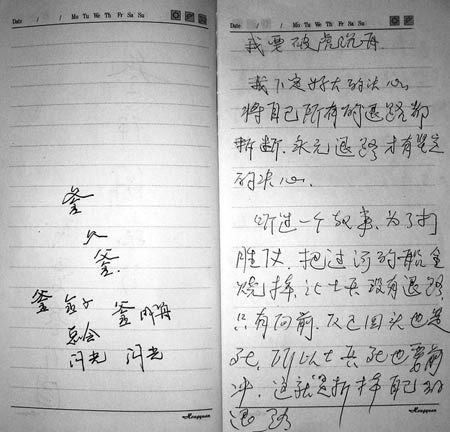 Date / / Mo Tu We Th Fr Sa Su
釜
釜
釜
总会
闪光 闪光
Hengyuan
Date / / Mo Tu We Th Fr Sa Su
我要破虎沉舟
我下定好大的决心
将自己所有的退路都
斩断.永无退路才有坚定
的决心.
听过一个故事.为了打
胜仗.把过河的船全
烧掉.让士兵没有退路
只有向前.反正回头也是
死.所以士兵死也要前
冲.这就是折掉自己的
退路
Hengyuan